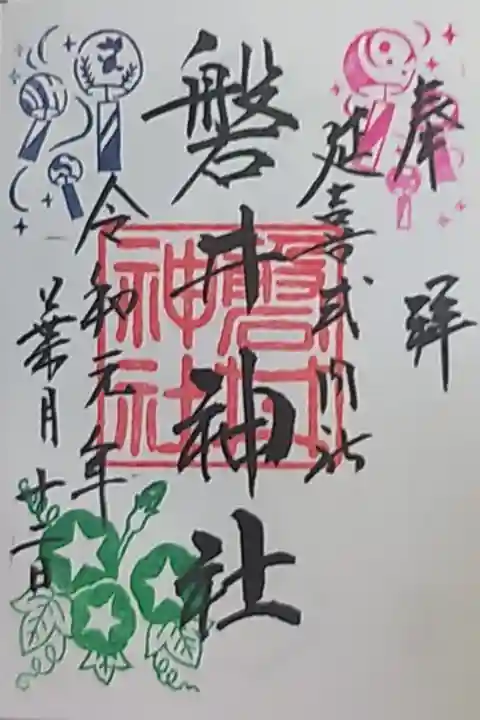 奉拝
延喜式内社
磐井神社
磐井神社
令和元年
葉月廿二日